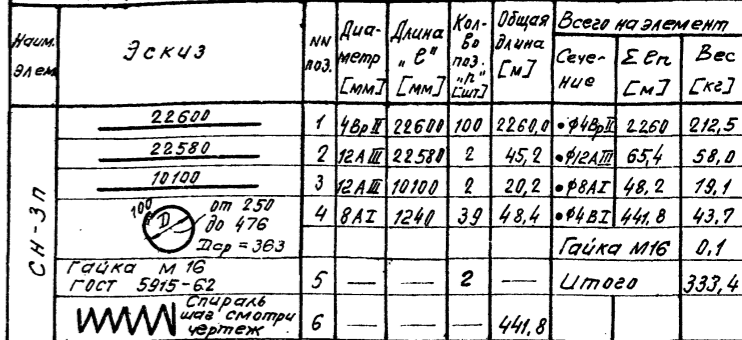 Наим. элем. Эскиз NN поз. Диаметр [мм] Длина "ℓ" [мм] Кол-во поз. "n" [шт] Общая длина [м] Всего на элемент
Сечение Σℓn [м] Вес [кг]
СН-3п
22600 1 4ВрII 22600 100 2260,0 •ϕ4ВрII 2260 212,5
22580 2 12АIII 22580 2 45,2 •ϕ12АIII 65,4 58,0
10100 3 12АIII 10100 2 20,2 •ϕ8АI 48,2 19,1
100 D от 250 до 476 Dср = 363 4 8АI 1240 39 48,4 •ϕ4ВI 441,8 43,7
Гайка М16 0,1
Гайка М 16
ГОСТ 5915-62 5 — — 2 — Итого 333,4
Спираль
шаг смотри
чертеж 6 — — — 441,8